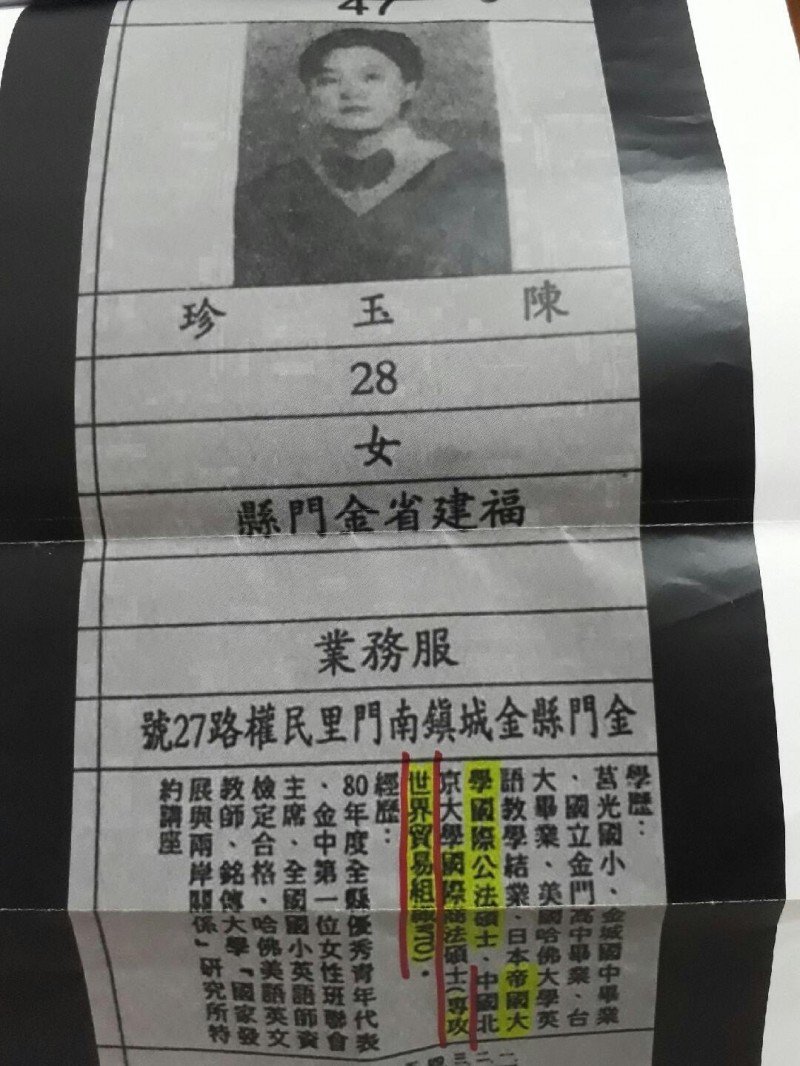 陳玉珍
28
女
福建省金門縣
服務業
金門縣金城鎮南門里民權路27號
學歷：
莒光國小、金城國中畢業
、國立金門高中畢業、台
大畢業、英國哈佛大學英
語教學結業、日本帝國大
學國際公法碩士、中國北
京大學國際商法碩士（專攻
世界貿易組織WTO）。
經歷：
80年度全縣優秀青年代表
、金中第一位女性班聯會
主席、全國國小英語師資
檢定合格、哈佛美語英文
教師、銘傳大學「國家發
展與兩岸關係」研究所特
約講座